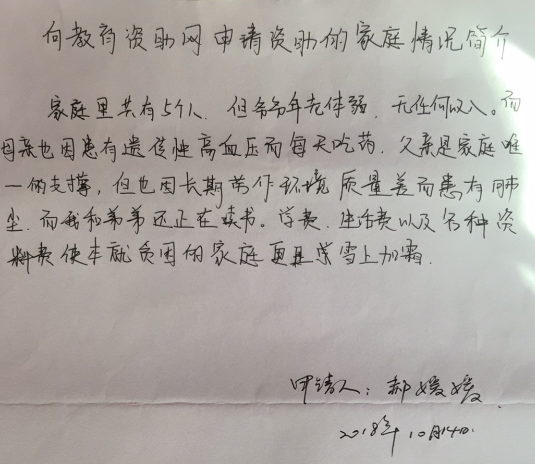 向教育资助网申请资助的家庭情况简介
家庭里共有5个人,但爷爷年老体弱,无任何收入。而
母亲也因患有遗传性高血压而每天吃药,父亲是家庭唯
一的支撑,但也因长期劳作环境质量差而患有肺
尘,而我和弟弟还正在读书。学费、生活费以及各种资
料费使本就贫困的家庭更是雪上加霜.
申请人:郝媛媛.
2018年10月14日.